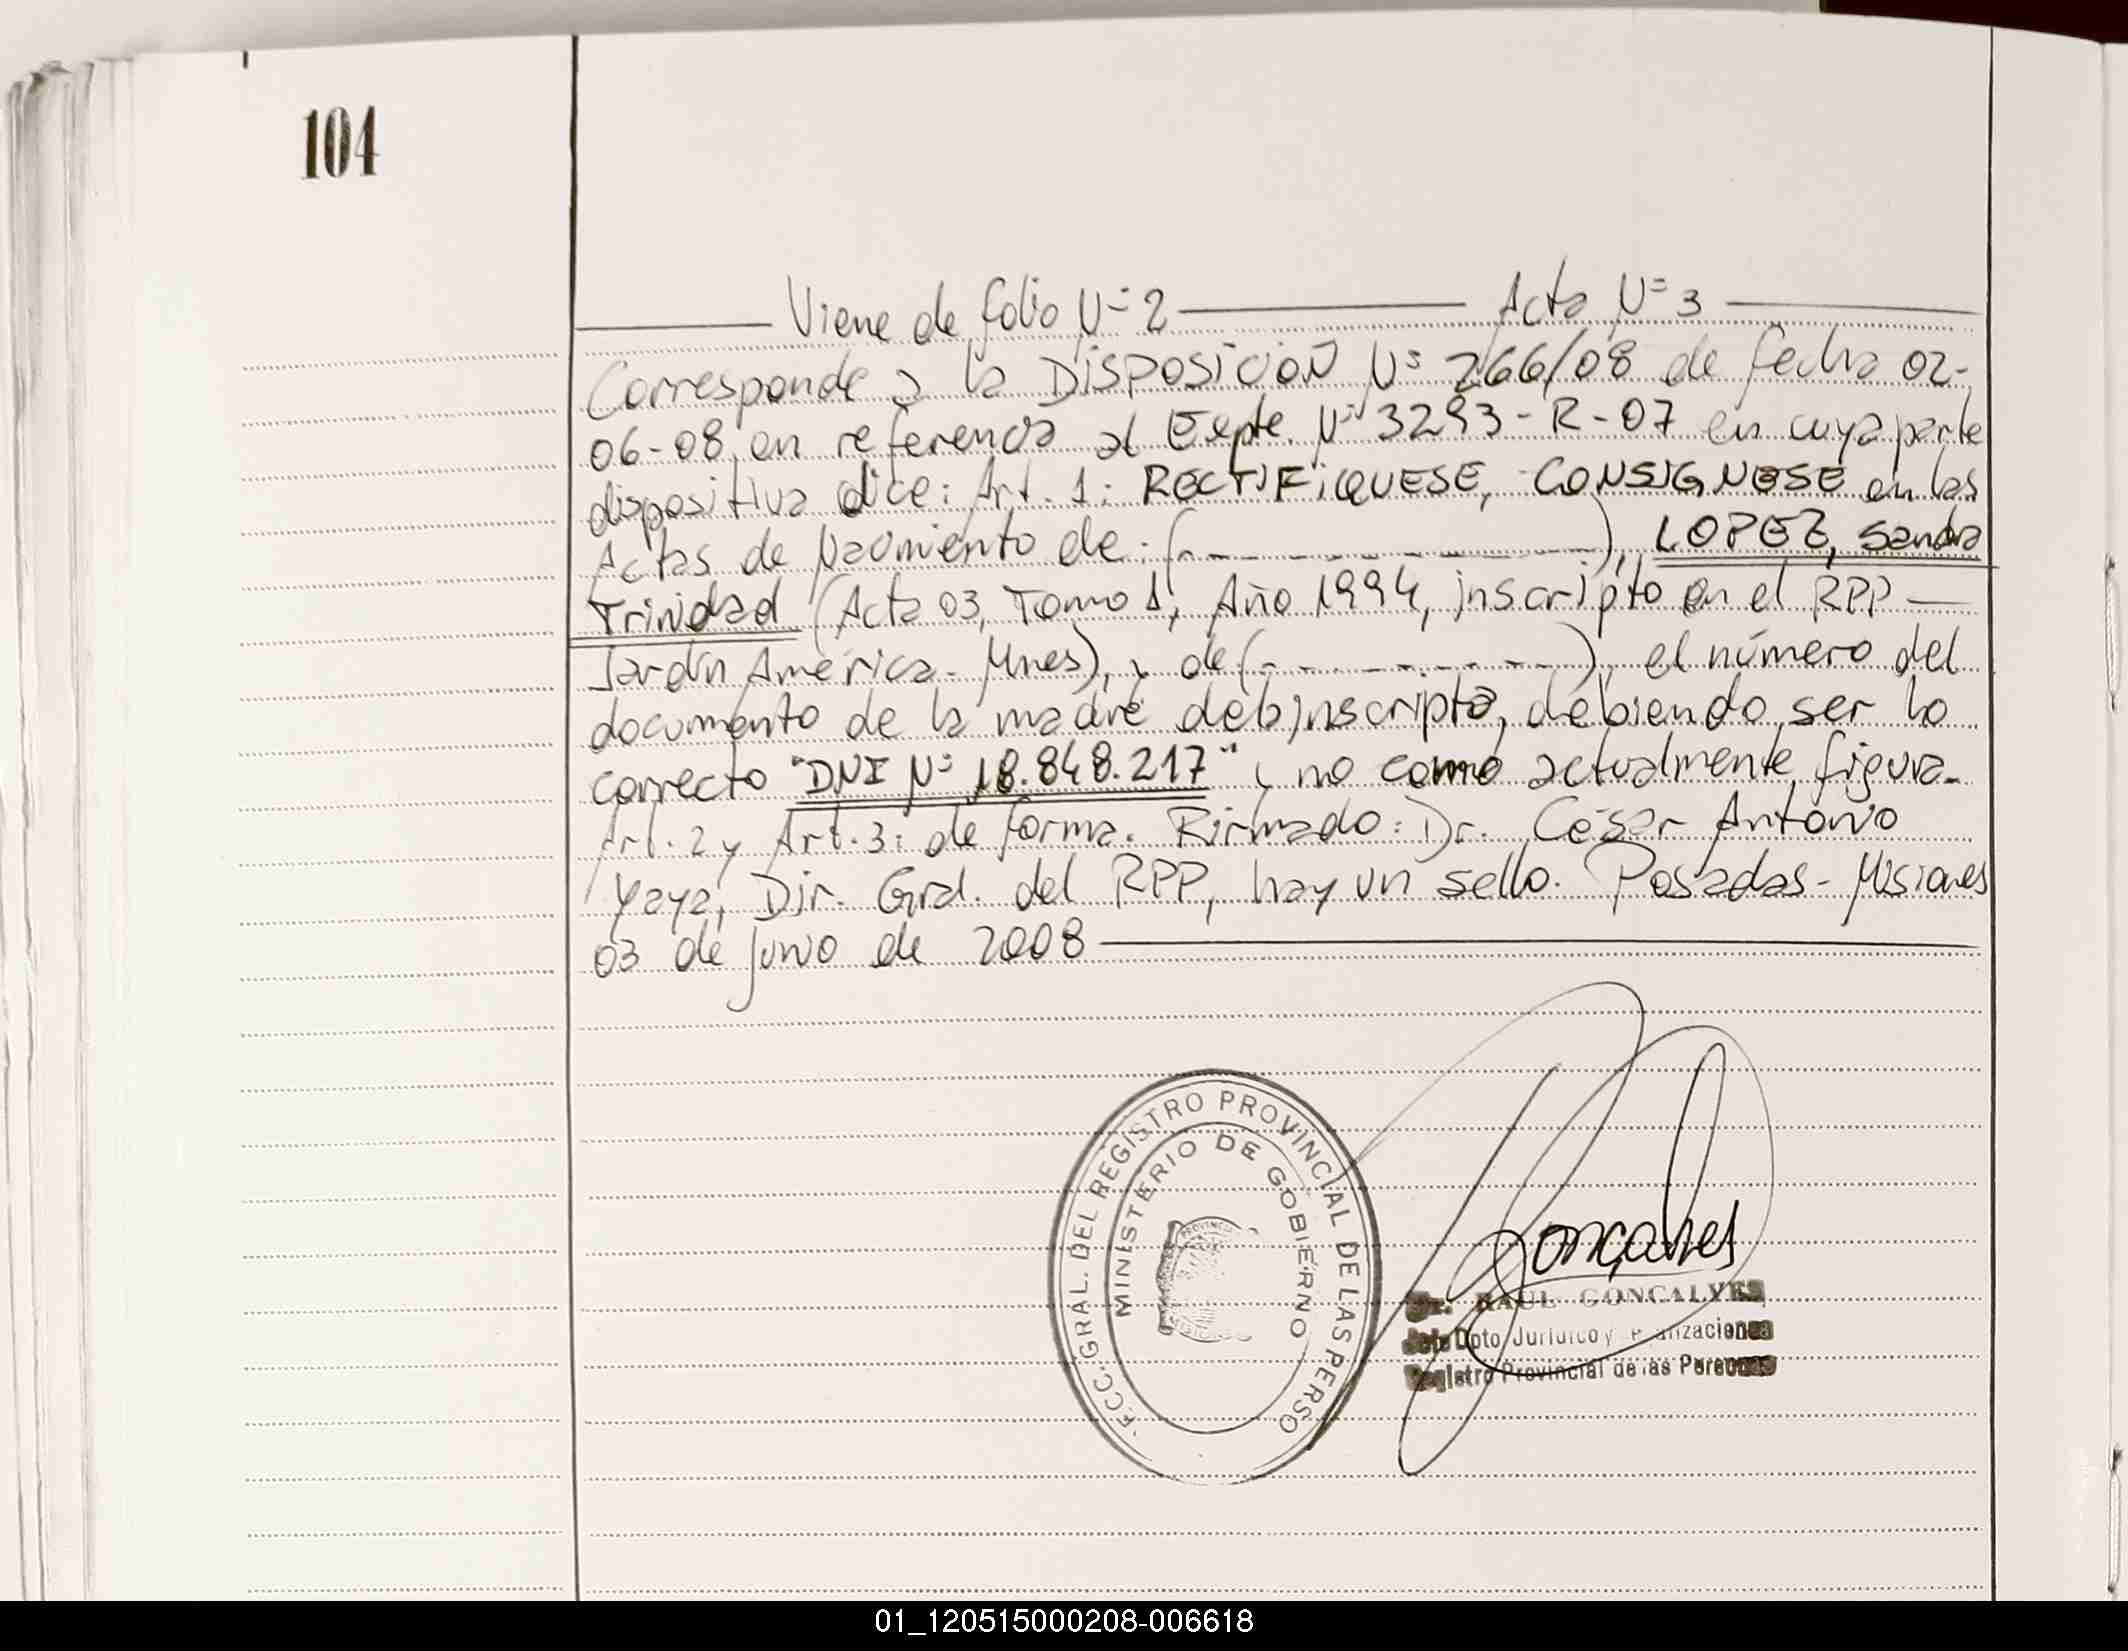 104
Viene de folio Nº 2 Acta Nº 3
Corresponde a la DISPOSICIÓN Nº 266/08 de fecha 02-
06-08 en referencia al Expte. Nº 3293-R-07 en cuya parte
dispositiva dice: Art. 1: RECTIFIQUESE, CONSIGNESE en las
Actas de Nacimiento de: (- - - - - - - - - -), LOPEZ, Sandra
Trinidad (Acta 03, Tomo 1, Año 1994, inscripto en el RPP
Jardín América - Mnes), y de (- - - - - - - - -), el número del
documento de la madre de la inscripta, debiendo ser lo
correcto "DNI Nº 18.848.217" y no como actualmente figura.
Art. 2 y Art. 3: de forma. Firmado: Dr. César Antonio
Yaya, Dir. Gral. del RPP, hay un sello. Posadas - Misiones
03 de junio de 2008
ECC. GRAL. DEL REGISTRO PROVINCIAL DE LAS PERSO
MINISTERIO DE GOBIERNO
Gonçalves
Dr. RAUL GONCALVES
Jefe Dpto. Jurídico y
Registro Provincial de las Personas
01_120515000208-006618